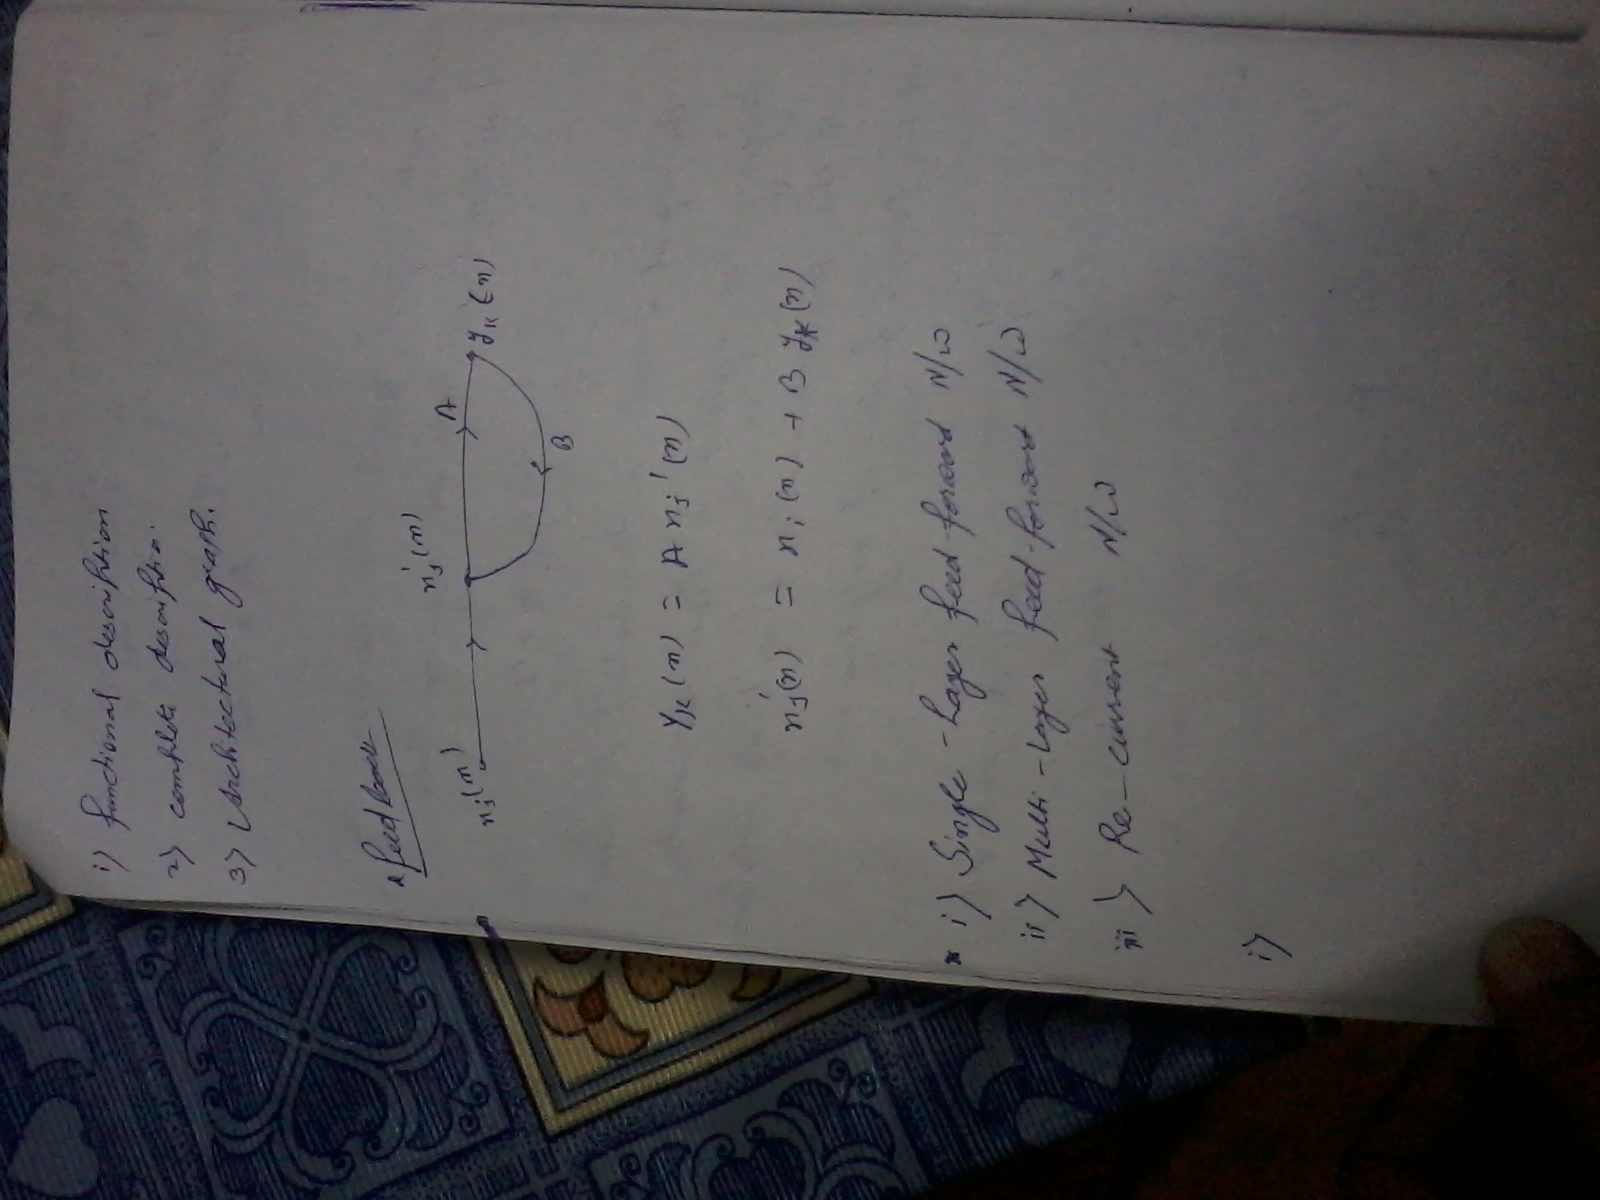 1) functional description
2) complete description.
3) Architectural graph.
* feed back
x_j'(n)
x_j(n)
A
y_k(n)
B
y_k(n) = A x_j'(n)
x_j'(n) = x_j(n) + B y_k(n)
* i) Single - Layer feed forward N/W
ii) Multi - Layer feed - forward N/W
iii) Re - current N/W
i)